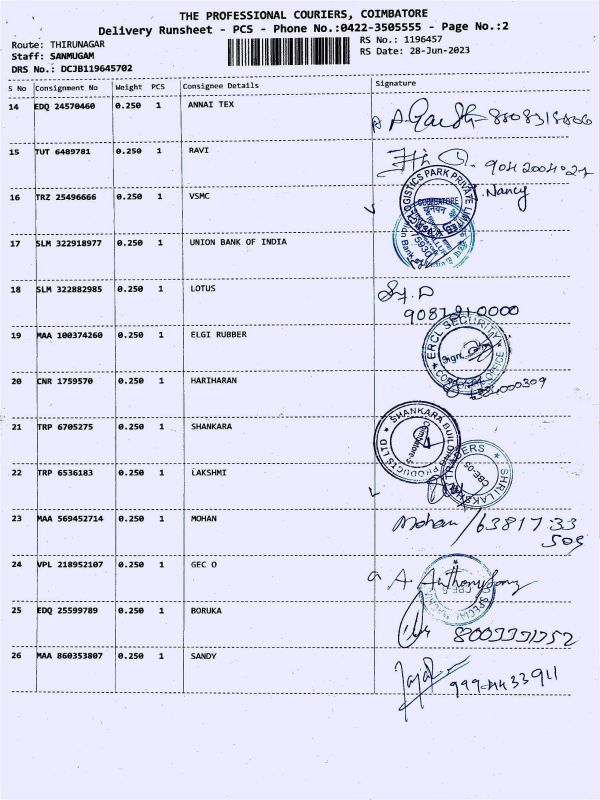 THE PROFESSIONAL COURIERS, COIMBATORE
Delivery Runsheet - PCS - Phone No.:0422-3505555 - Page No.:2
Route: THIRUNAGAR
RS No.: 1196457
Staff: SANMUGAM
RS Date: 28-Jun-2023
DRS No.: DCJB119645702
S No Consignment No Weight PCS Consignee Details Signature
14 EDQ 24570460 0.250 1 ANNAI TEX
15 TUT 6489781 0.250 1 RAVI
16 TRZ 25496666 0.250 1 VSMC
Nancy
LOGISTICS PARK PRIVATE LIMITED
COIMBATORE
17 SLM 322918977 0.250 1 UNION BANK OF INDIA
18 SLM 322882985 0.250 1 LOTUS
19 MAA 100374260 0.250 1 ELGI RUBBER
ERCL SECURITY
OFFICE
20 CNR 1759570 0.250 1 HARIHARAN
21 TRP 6705275 0.250 1 SHANKARA
SHANKARA BUILDING PRODUCTS LTD
22 TRP 6536183 0.250 1 LAKSHMI
SHRI LAKSHMI TRADERS
CBE-05
23 MAA 569452714 0.250 1 MOHAN Mohan / 63817 33
505
24 VPL 218952107 0.250 1 GEC O
25 EDQ 25599789 0.250 1 BORUKA
26 MAA 860353807 0.250 1 SANDY